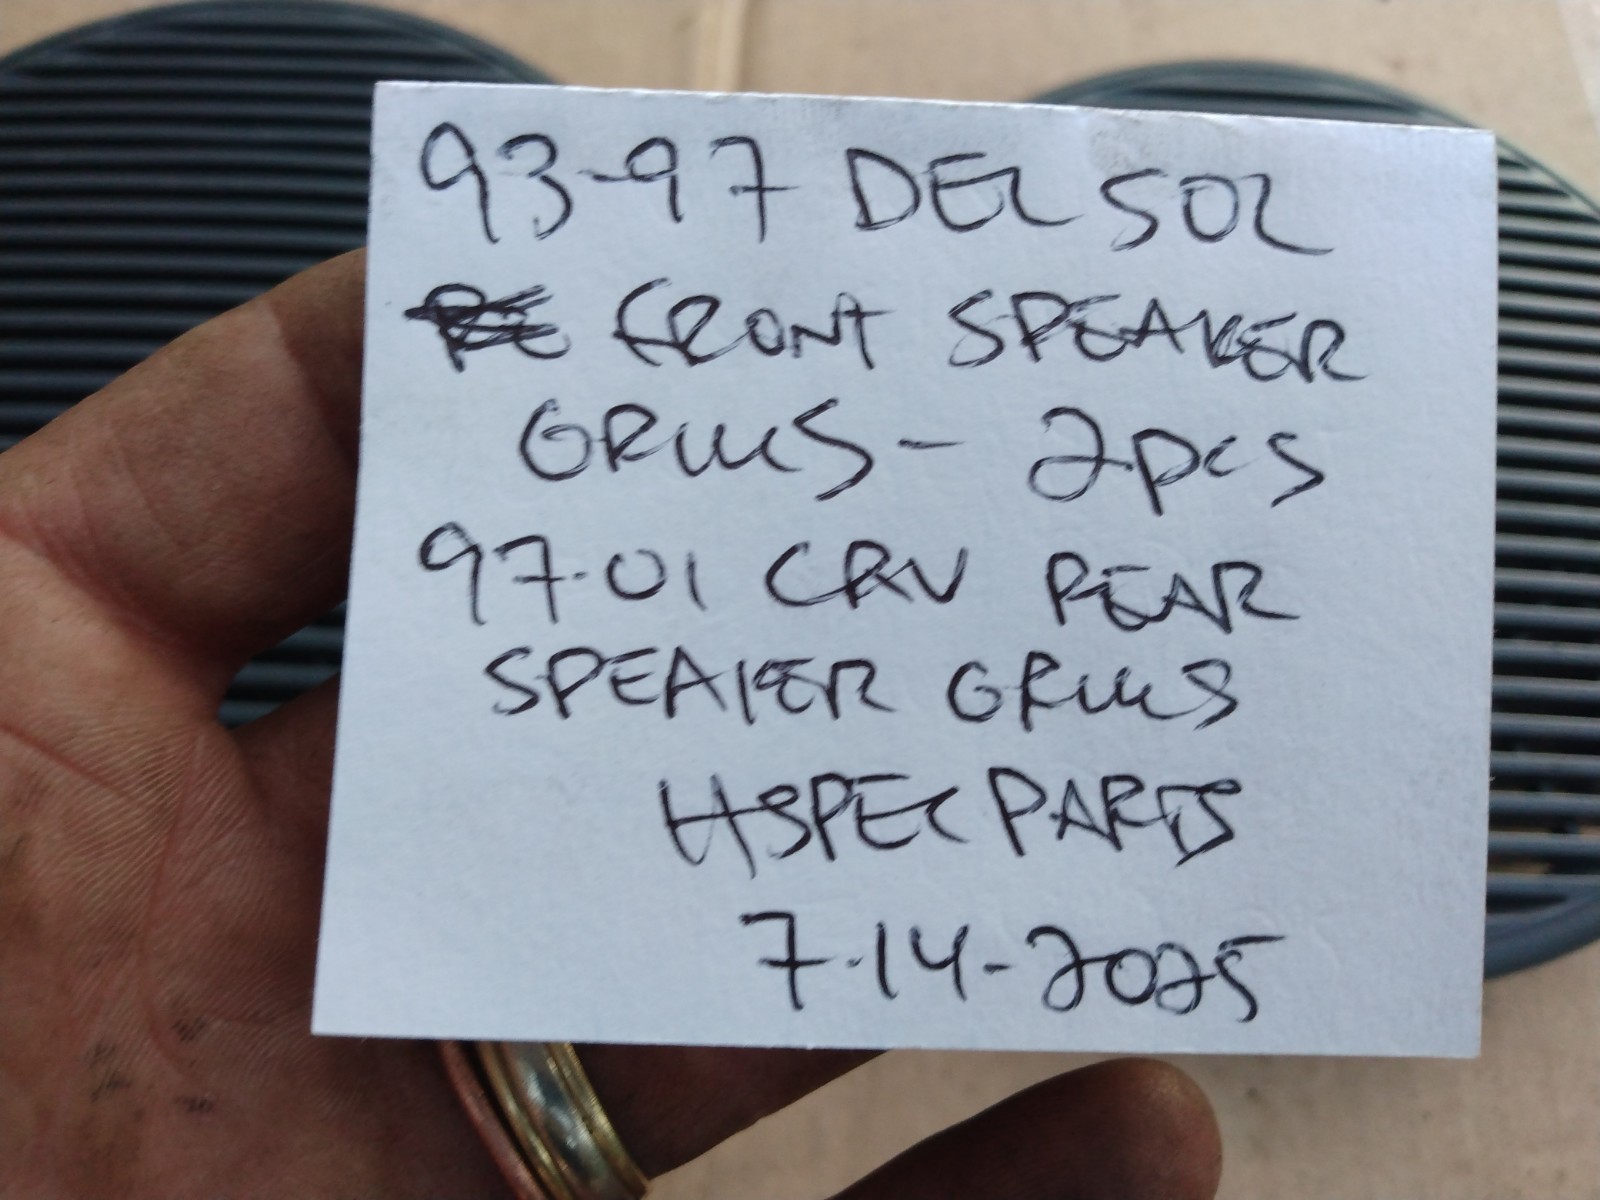 93-97 DEL SOL
FRONT SPEAKER
GRILLS - 2pcs
97-01 CRV REAR
SPEAKER GRILLS
HSPEC PARTS
7-14-2025